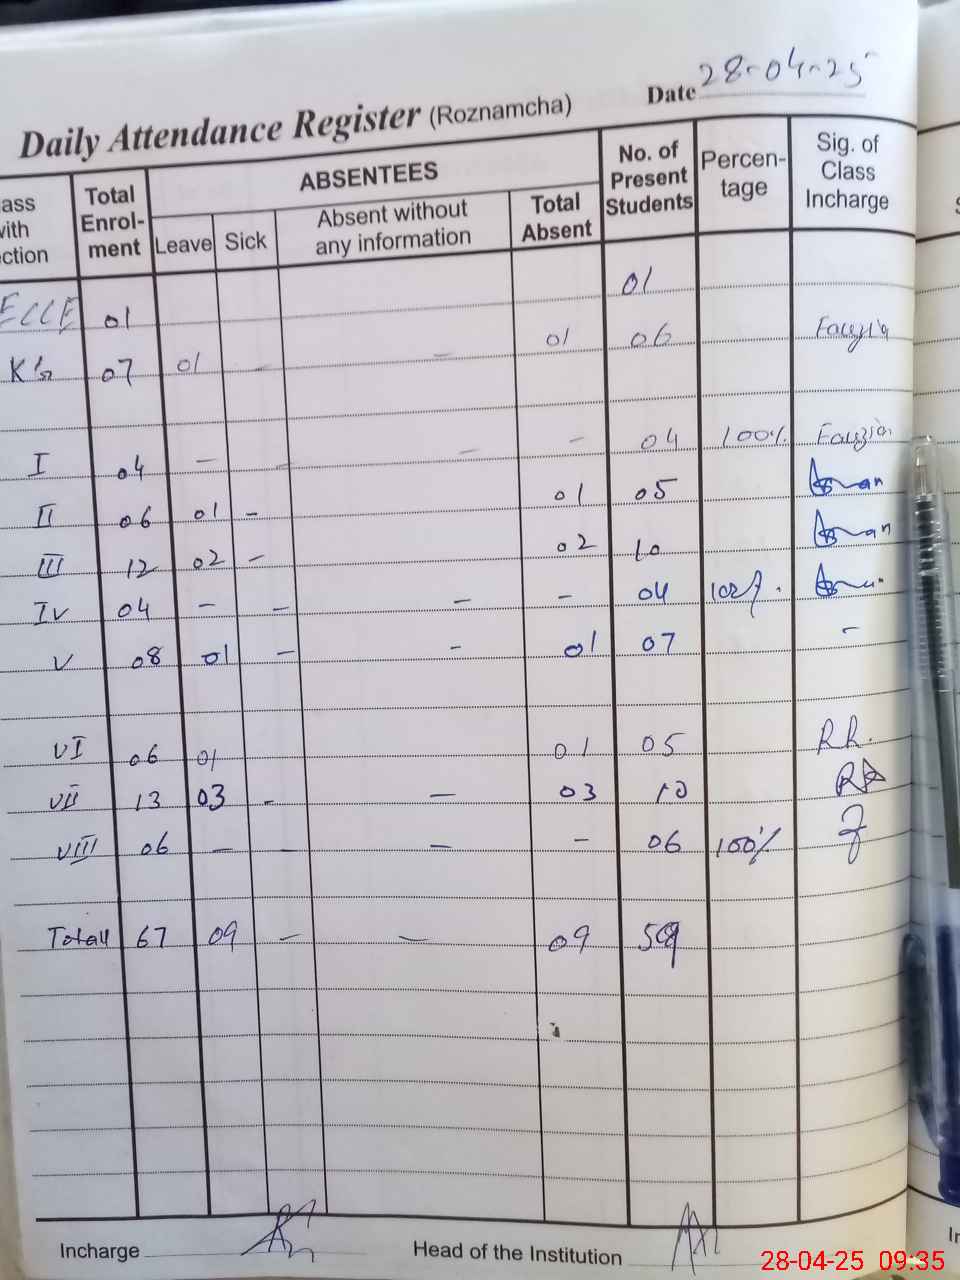 Date 28-04-25
Daily Attendance Register (Roznamcha)
ass
with
ction
Total
Enrol-
ment
ABSENTEES
Leave
Sick
Absent without
any information
Total
Absent
No. of
Present
Students
Percen-
tage
Sig. of
Class
Incharge
ECCE 01 01
07 01 - - 01 06 Fauzia
I 04 - - - - 04 100% Fauzia
II 06 01 - 01 05
III 12 02 - 02 10
IV 04 - - - - 04
V 08 01 - - 01 07 -
VI 06 01 01 05 RR.
VII 13 03 - - 03 10
VIII 06 - - - - 06 100%
Total 67 09 - - 09
Incharge
Head of the Institution
28-04-25 09:35